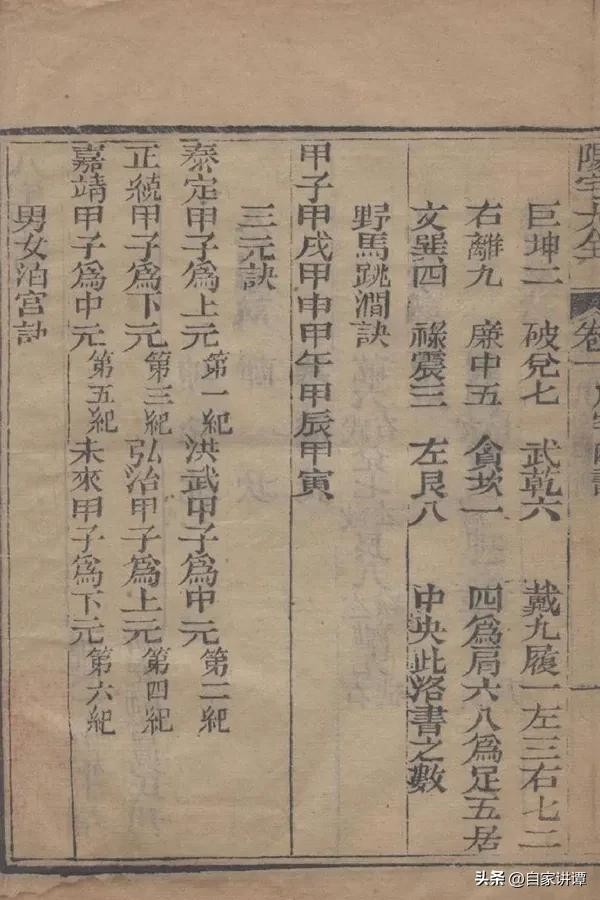 陽宅大全 卷一
巨坤二 破兌七 武乾六 戴九履一左三右七二
右離九 廉中五 貪坎一 四爲肩六八爲足五居
文巽四 祿震三 左艮八 中央此洛書之數
野馬跳澗訣
甲子甲戌甲申甲午甲辰甲寅
三元訣
泰定甲子爲上元第一紀 洪武甲子爲中元第二紀
正統甲子爲下元第三紀 弘治甲子爲上元第四紀
嘉靖甲子爲中元第五紀 未來甲子爲下元第六紀
男女泊宮訣
头条 @自家讲谭